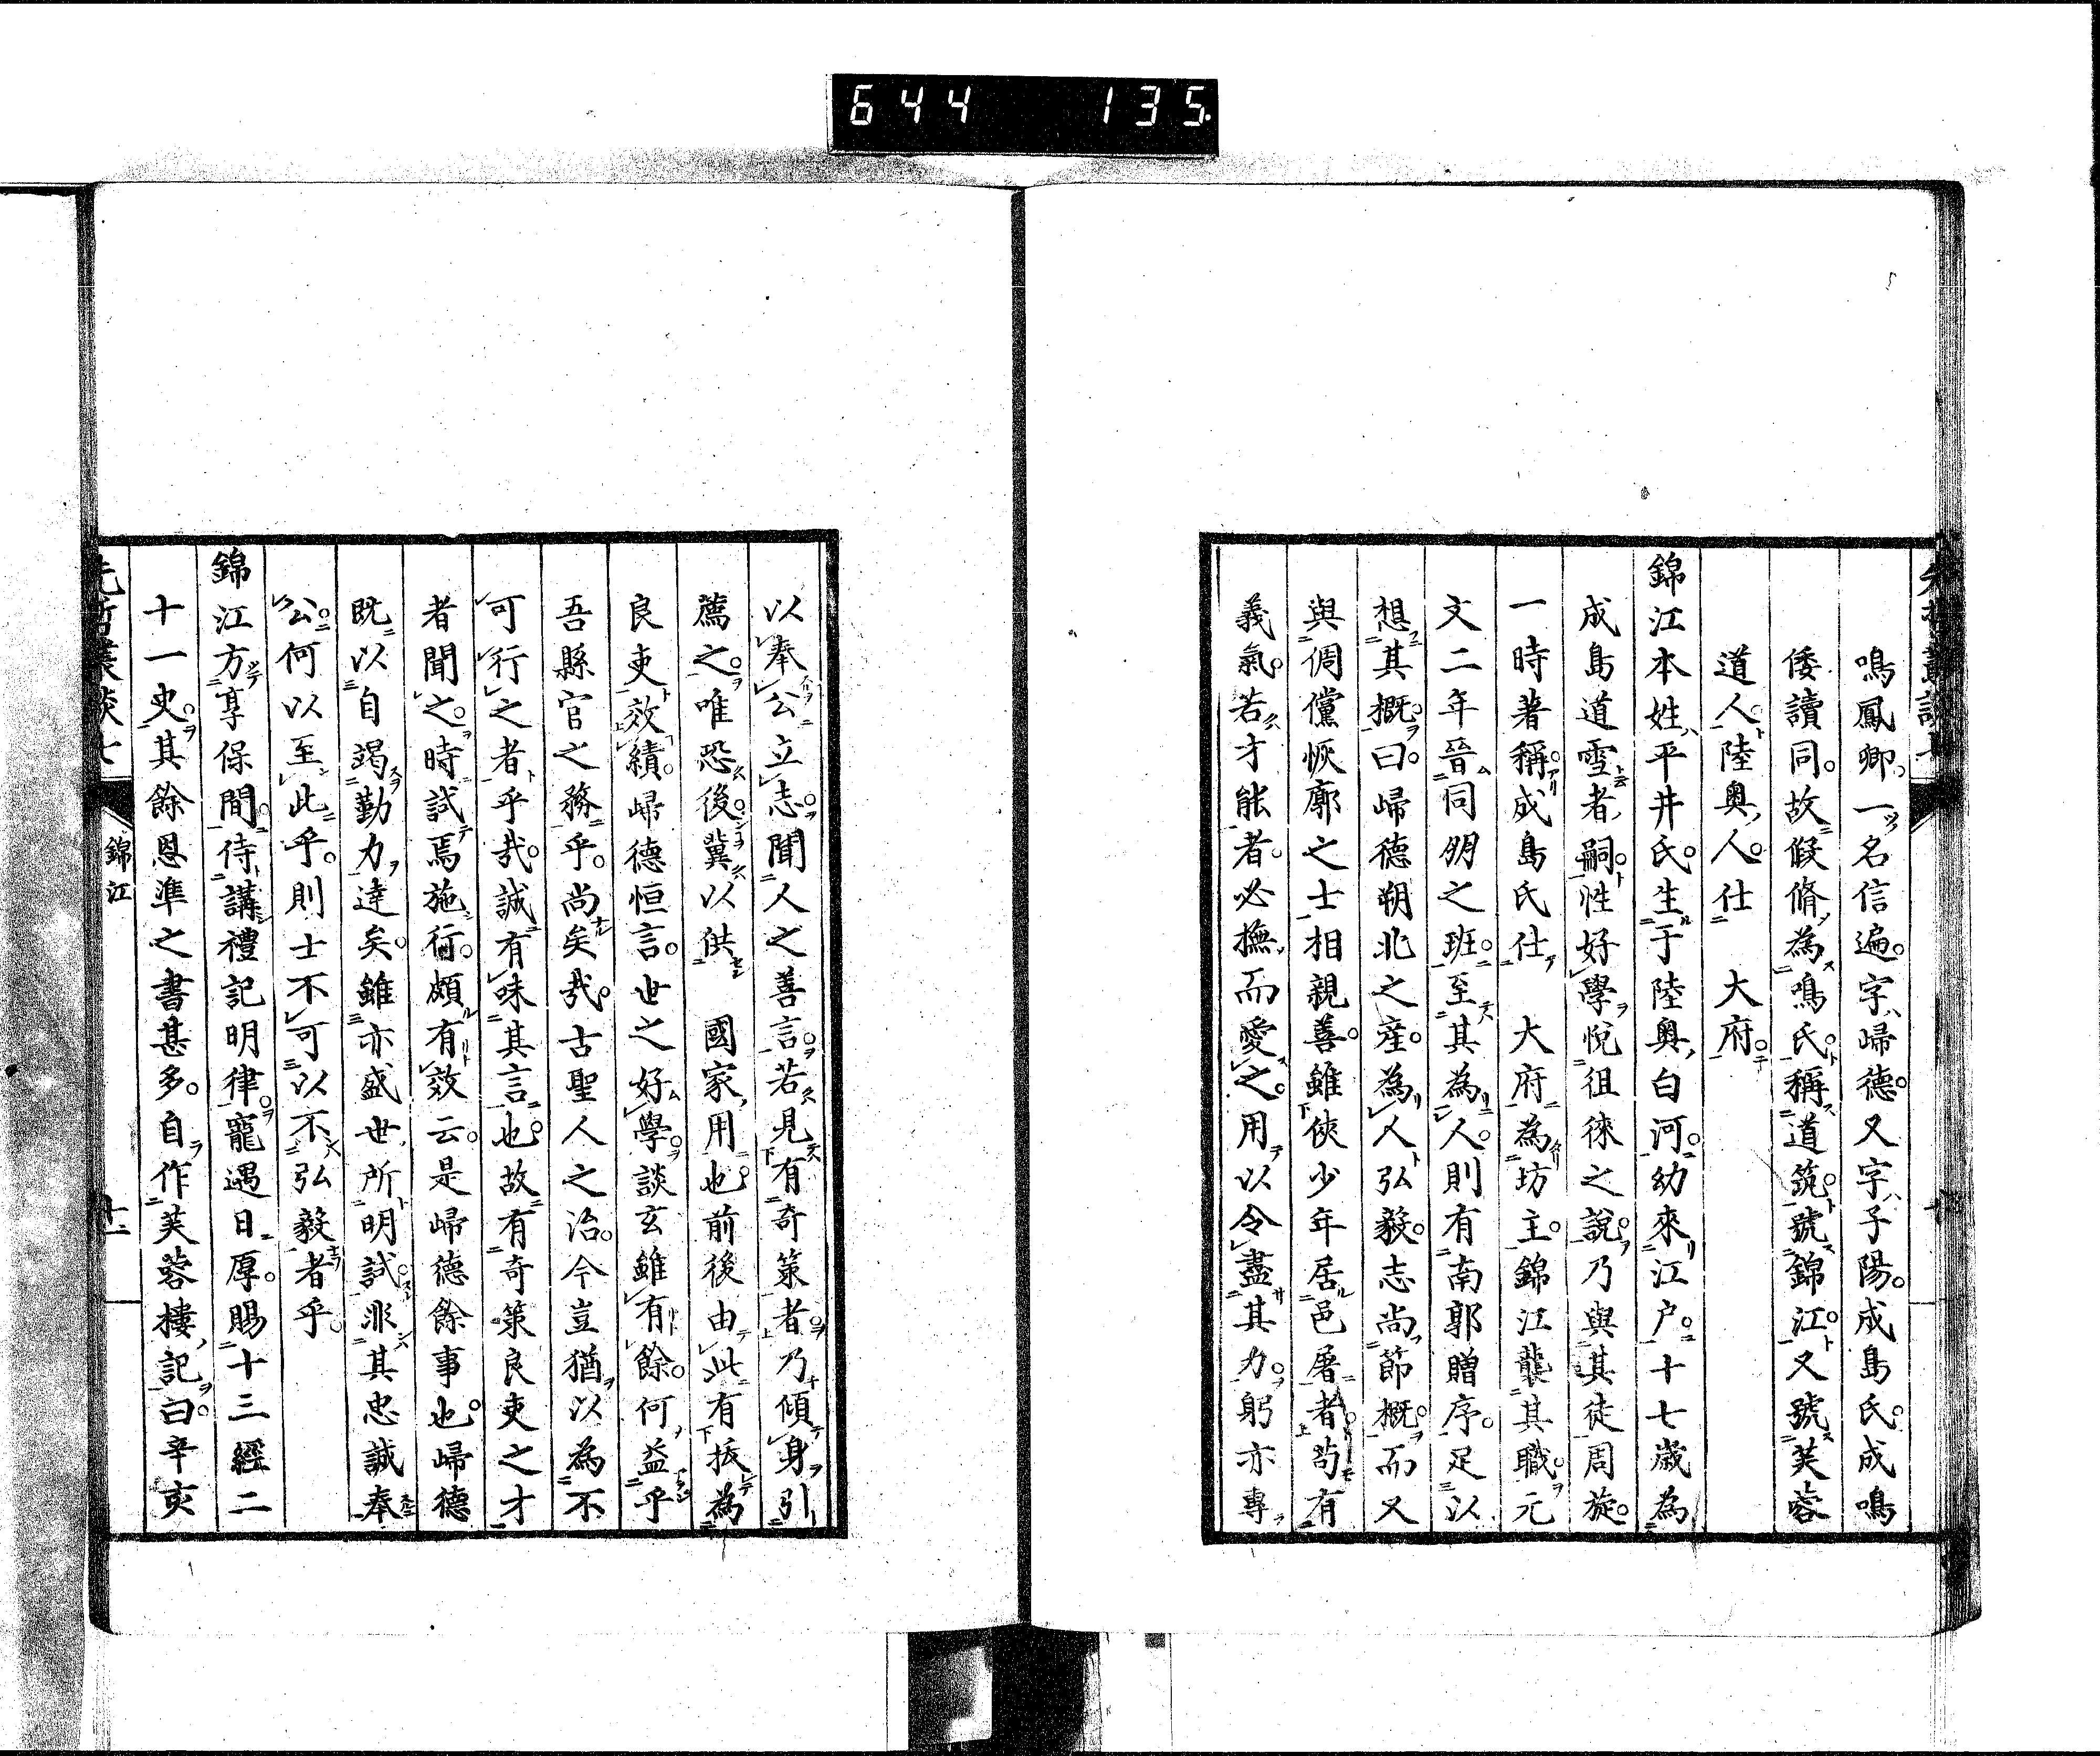 644 135
鳴鳳卿一名信遍字歸德又字子陽成島氏成鳴
倭讀同故假脩為鳴氏稱道筑號錦江又號芙蓉
道人陸奧人仕 大府
錦江本姓平井氏生于陸奧白河幼來江戶十七歲為
成島道雪者嗣性好學悅徂徠之說乃與其徒周旋
一時著稱成島氏仕 大府為坊主錦江襲其職元
文二年晉同朋之班至其為人則有南郭贈序足以
想其概曰歸德朔北之產為人弘毅志尚節概而又
與倜儻恢廓之士相親善雖俠少年居邑屠者苟有
義氣若才能者必撫而愛之用以令盡其力躬亦專
以奉公立志聞人之善言若見有奇策者乃傾身引
薦之唯恐後冀以供 國家用也前後由此有拔為
良吏效績歸德恒言世之好學談玄雖有餘何益乎
吾縣官之務乎尚矣哉古聖人之治今豈猶以為不
可行之者乎哉誠有味其言也故有奇策良吏之才
者聞之時試焉施行頗有效云是歸德餘事也歸德
既以自竭勤力達矣雖亦盛世所明試非其忠誠奉
公何以至此乎則士不可以不弘毅者乎
錦江方享保間侍講禮記明律寵遇日厚賜十三經二
十一史其餘恩準之書甚多自作芙蓉樓記曰辛亥
先哲叢談七 錦江 十一